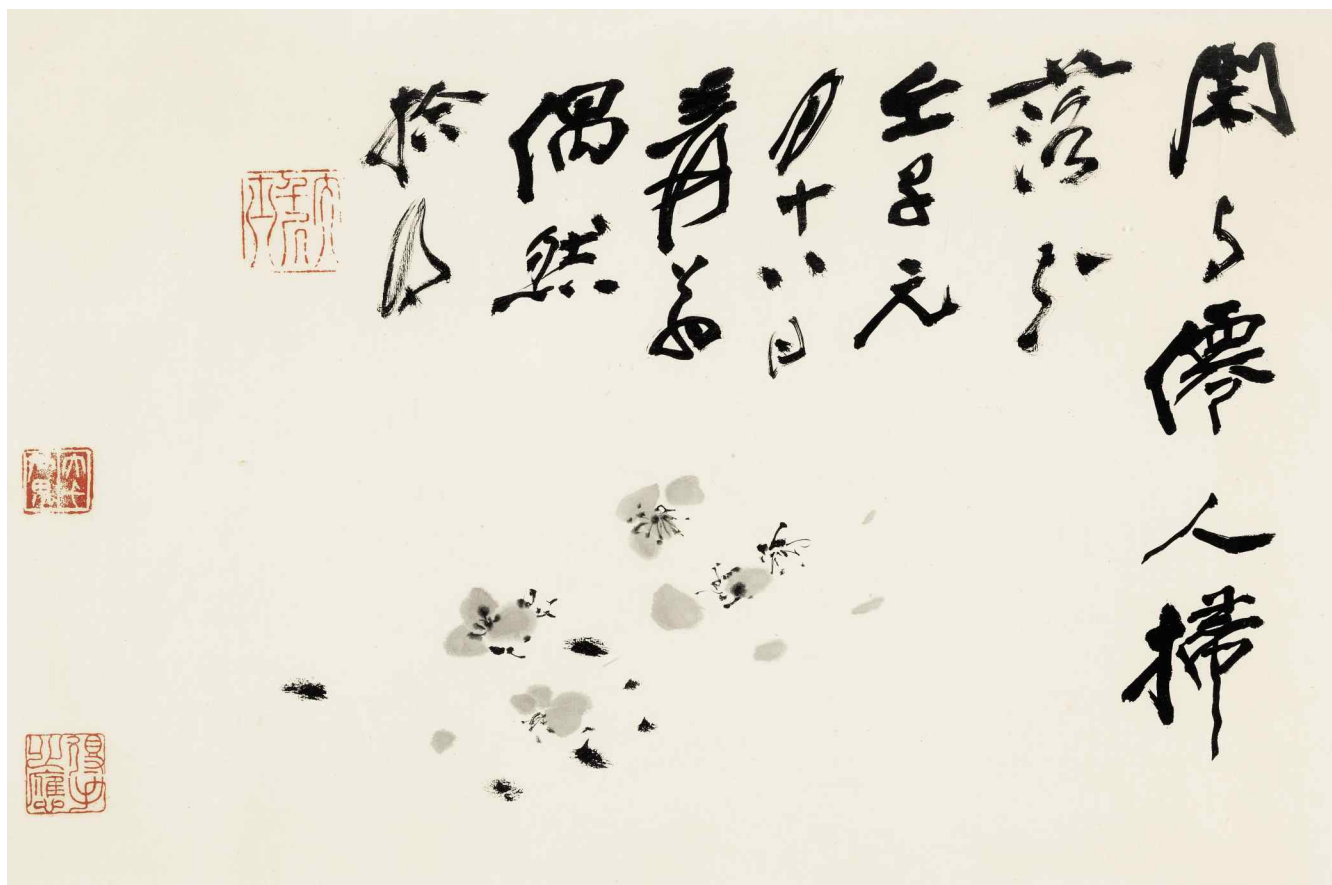 閑与僊人掃
落花
壬子元
月十八日
爰翁
偶然
拾得